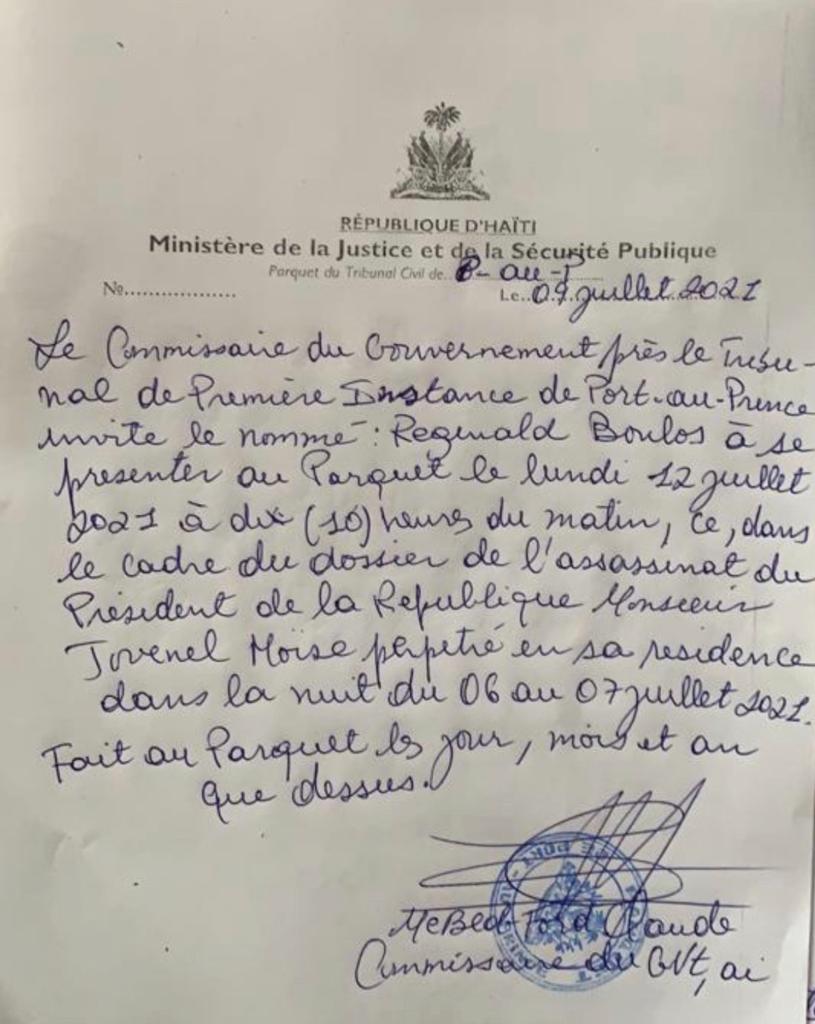 RÉPUBLIQUE D'HAÏTI
Ministère de la Justice et de la Sécurité Publique
Parquet du Tribunal Civil de. P-au-P
No.................. Le..09 juillet 2021
Le Commissaire du Gouvernement près le Tribu-
nal de Première Instance de Port-au-Prince
invite le nommé : Reginald Boulos à se
présenter au Parquet le lundi 12 juillet
2021 à dix (10) heures du matin, ce, dans
le cadre du dossier de l'assassinat du
Président de la République Monsieur
Jovenel Moïse perpetré en sa residence
dans la nuit du 06 au 07 juillet 2021.
Fait au Parquet les jour, mois et an
que dessus.
Me Bed-Ford Claude
Commissaire du GVt, ai